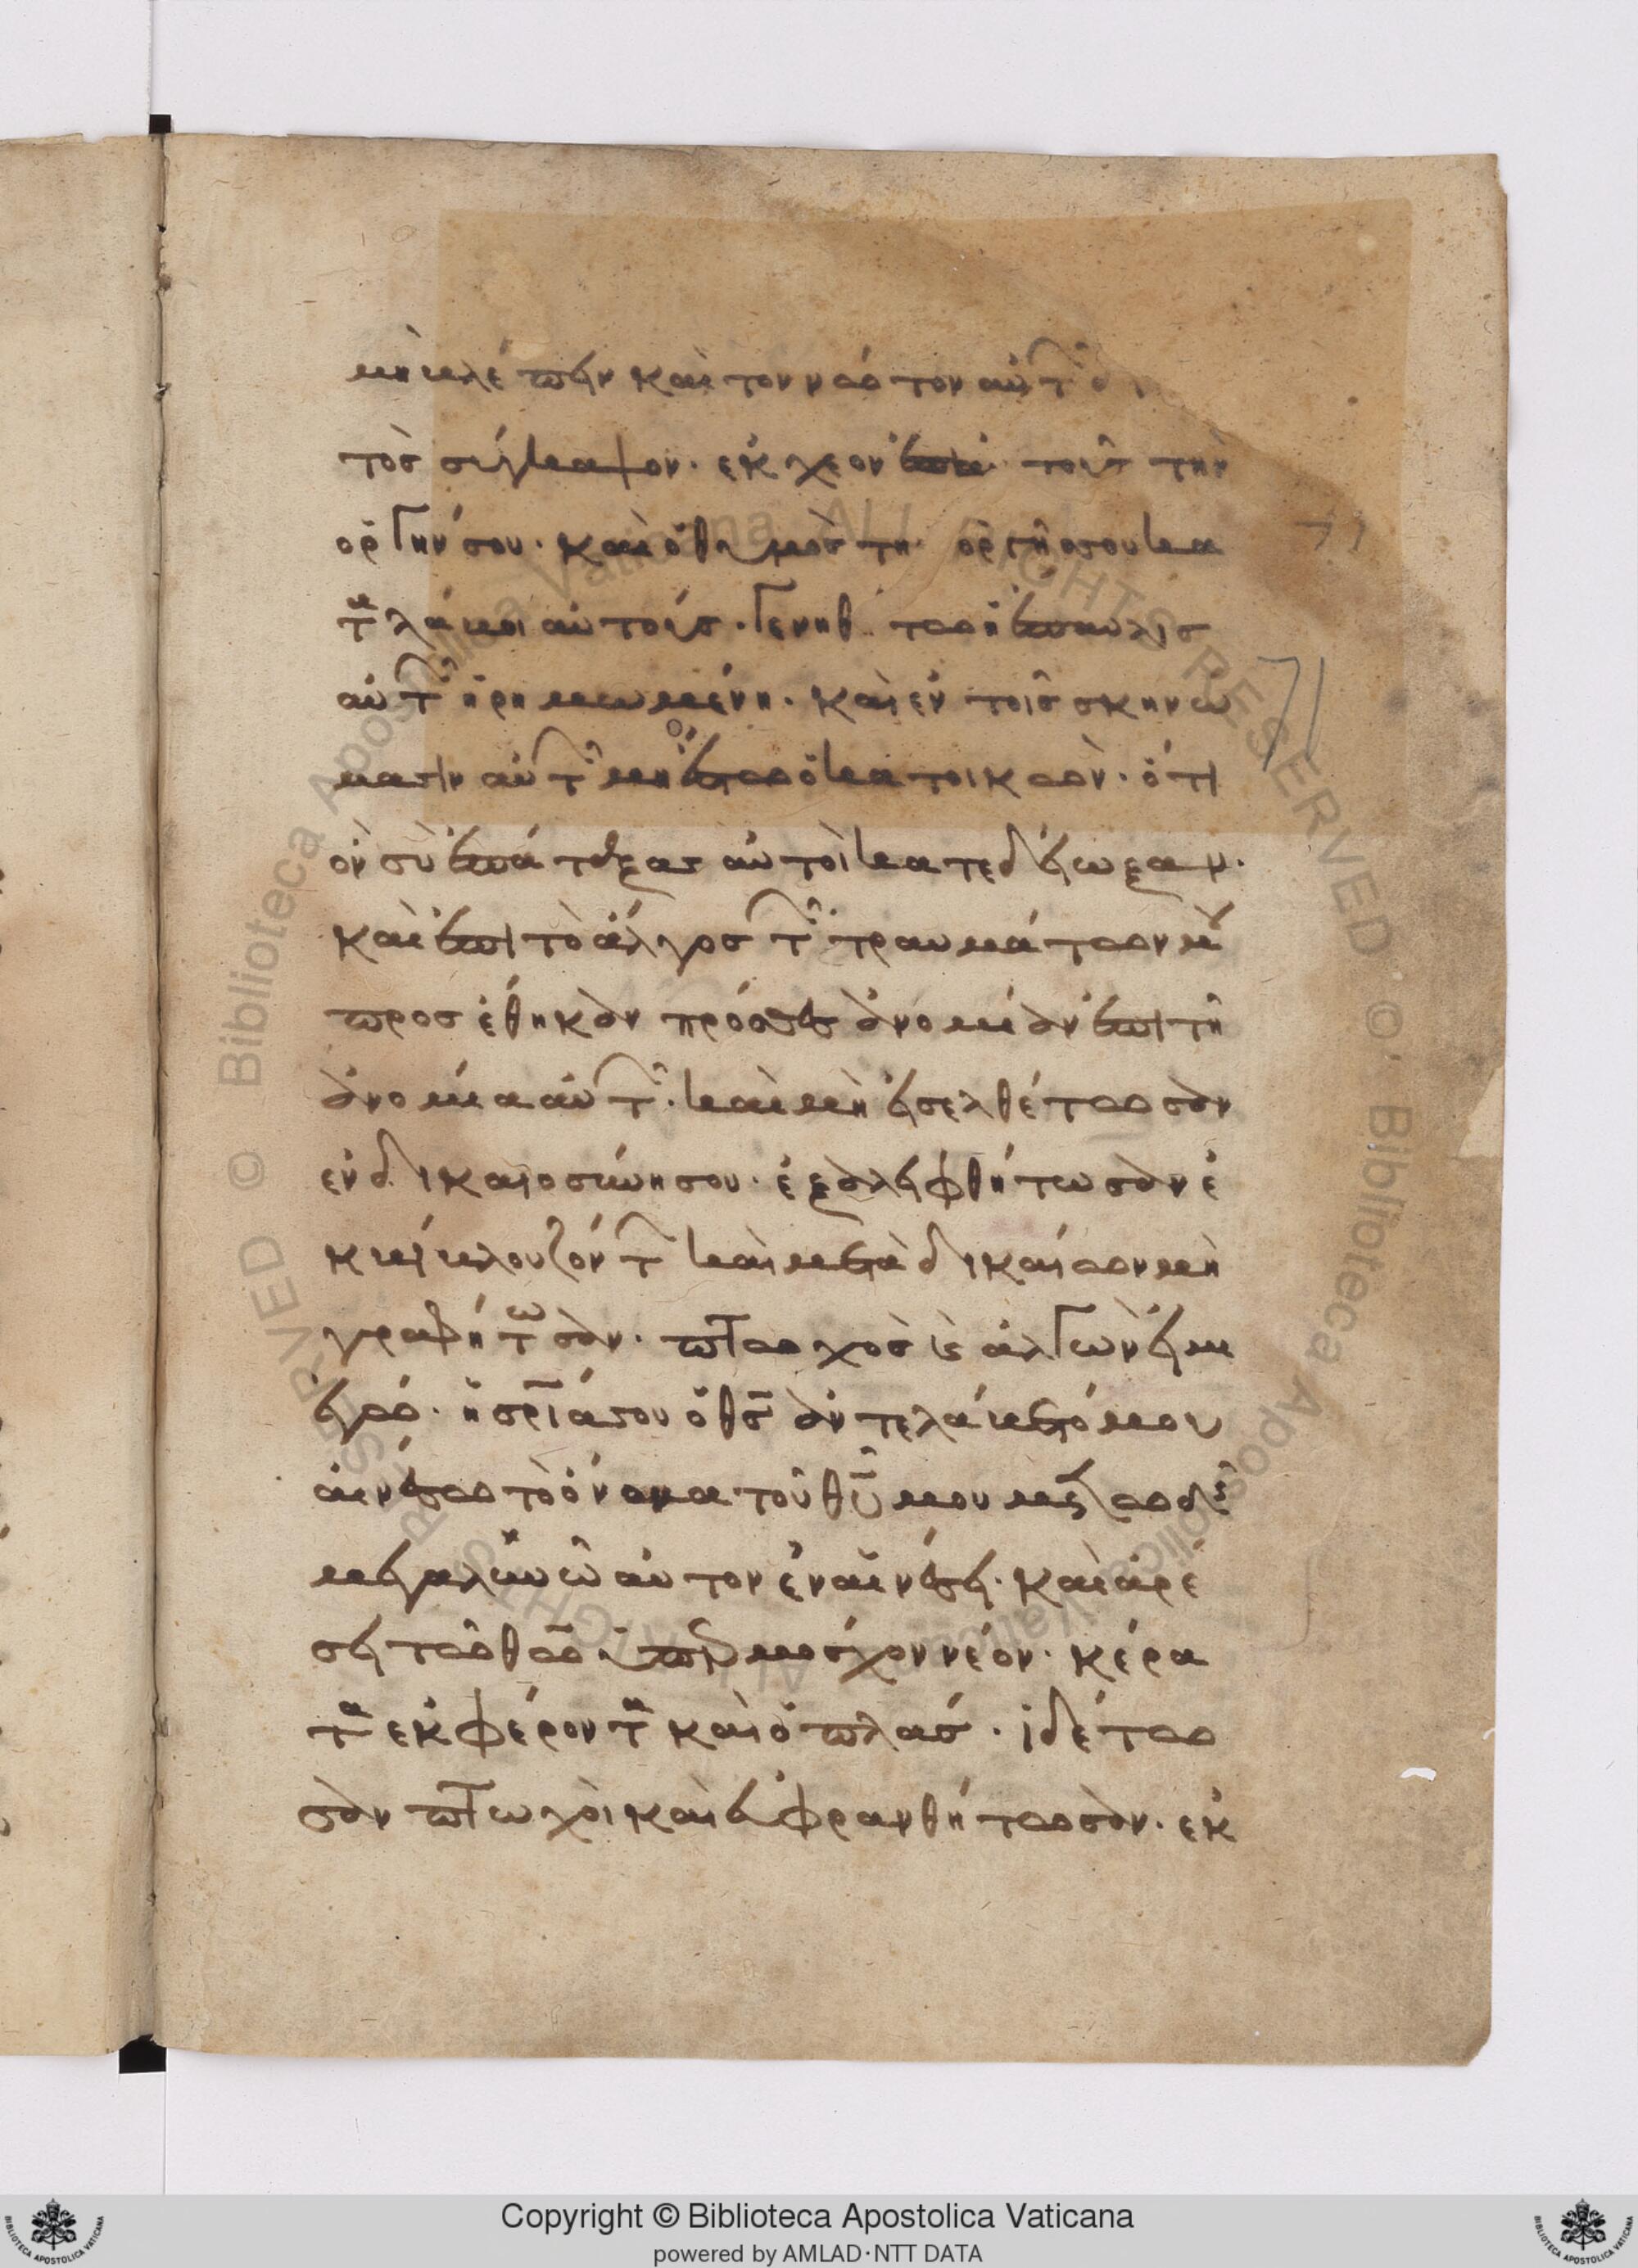 μὴ βλέπειν καὶ τὸν νῶτον αὐτῶν
τὸς σύγκαμψον· ἔκχεον ἐπ' αὐτοὺς τὴν
ὀργήν σου· καὶ ὁ θυμὸς τῆς ὀργῆς σου κα
ταλάβοι αὐτούς· γενηθήτω ἡ ἔπαυλις
αὐτῶν ἠρημωμένη· καὶ ἐν τοῖς σκηνώ
μασιν αὐτῶν μὴ ἔστω ὁ κατοικῶν· ὅτι
ὃν σὺ ἐπάταξας αὐτοὶ κατεδείωξαν·
καὶ ἐπὶ τὸ ἄλγος τῶν τραυμάτων μου
προσέθηκαν πρόσθες ἀνομίαν ἐπὶ τῇ
ἀνομίᾳ αὐτῶν· καὶ μὴ εἰσελθέτωσαν
ἐν δικαιοσύνῃ σου· ἐξαλειφθήτωσαν ἐ
κ βίβλου ζώντων καὶ μετὰ δικαίων μὴ
γραφήτωσαν· πτωχὸς καὶ ἀλγῶν εἰμι
ἐγώ· ἡ σρία σου ὁ θς ἀντελάβετό μου
αἰνέσω τὸ ὄνομα τοῦ θυ μου μετ' ὠδῆς
μεγαλυνῶ αὐτὸν ἐν αἰνέσει· καὶ ἀρέ
σει τῶ θω ὑπὲρ μόσχον νέον· κέρα
τα ἐκφέροντα καὶ ὁπλάς· ἰδέτω
σαν πτωχοὶ καὶ εὐφρανθήτωσαν· ἐκ
71
71
Copyright © Biblioteca Apostolica Vaticana
powered by AMLAD·NTT DATA